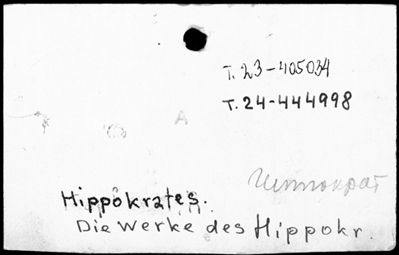 т. 23-405034
т. 24-444998
А
Гиппократ
Hippokrates.
Die Werke des Hippokr.